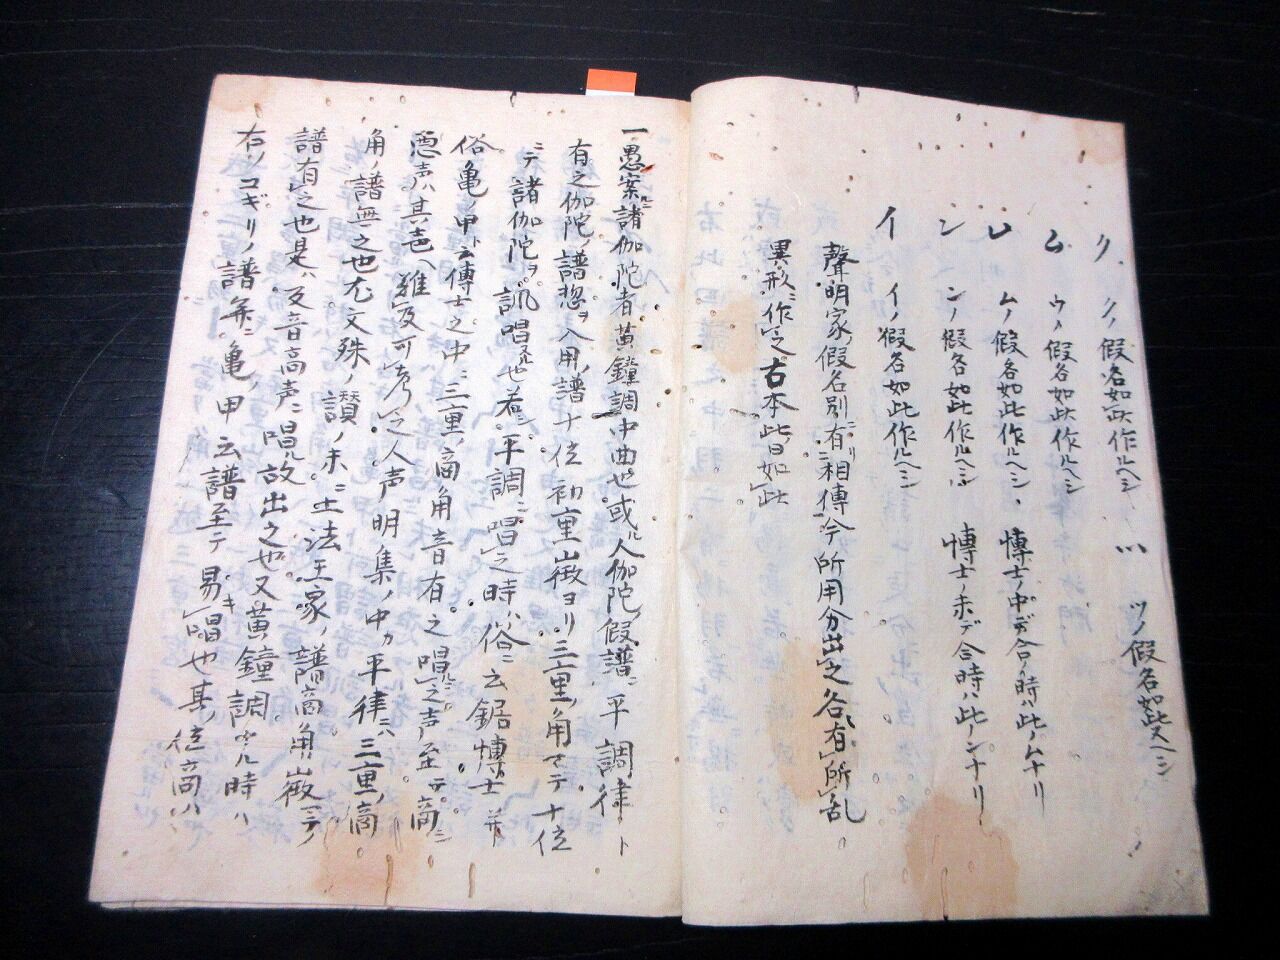 ク クノ假名如此作ルヘシ ツノ假名如此又ヘシ
ム ウノ假名如此作ルヘシ
レ ムノ假名如此作ルヘシ、博士ノ中デ合ノ時ハ此ノムナリ
ン ンノ假名如此作ルヘシ 博士ノ末デ合時ハ此ノンナリ
イ イノ假名如此作ルヘシ
聲明家假名別有相傳今所用分出之各有所乱
異形ニ作之右本此日如此
一愚案ルニ諸伽陀者黄鐘調中曲也或ル人伽陀假譜ニ平調律ト
有之伽陀ノ譜惣ヲ入用ノ譜十位初重徴ヨリ三重ノ角マテ十位
ニテ諸伽陀ヲ訊唱スル也若シ平調ニ唱之時ハ俗ニ云鋸博士并ト
俗亀ノ甲ト云博士之中ニ三重ノ商角音有之唱之声至テ高シ
悪声ハ其壱ヘ難及可考之人声明集ノ中カ平律ニハ三重ノ商
角ノ譜無之也尤文殊ノ讃ノ末ニ土法王家ノ譜商角徴ニテノ
譜有之也是ハ反音高声ニ唱ル故出之也又黄鐘調ナル時ハ
右ノコギリノ譜并ニ亀ノ甲云譜至テ易キ唱也其ノ位商ハ